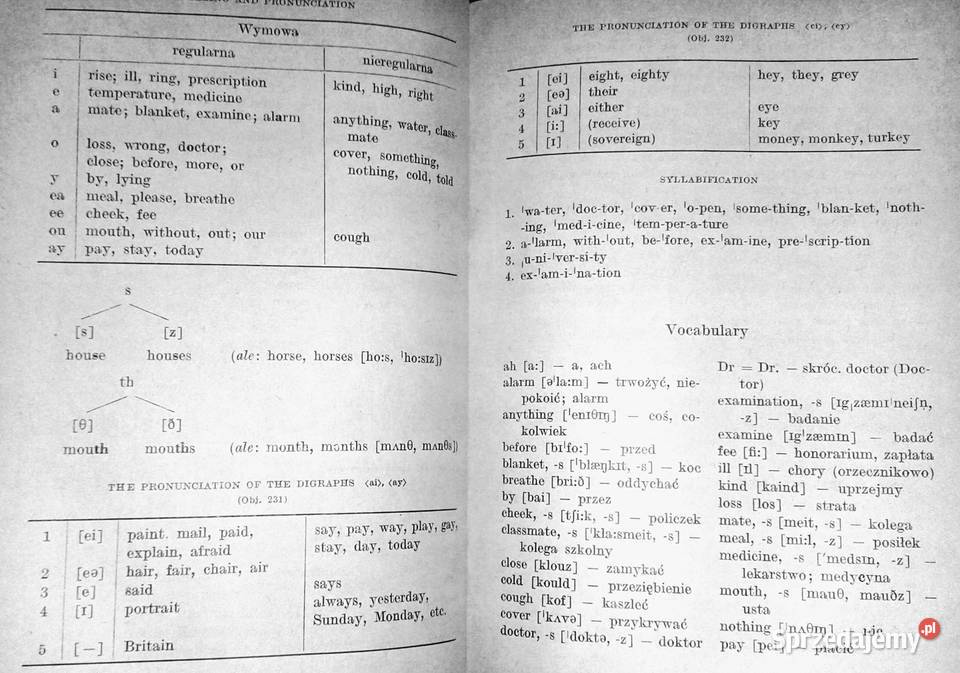 AND PRONUNCIATION
Wymowa
regularna nieregularna
i rise; ill, ring, prescription kind, high, right
e temperature, medicine
a mate; blanket, examine; alarm anything, water, class-
mate
o loss, wrong, doctor; cover, something,
close; before, more, or nothing, cold, told
y by, lying
ea meal, please, breathe
ee cheek, fee
ou mouth, without, out; our cough
ay pay, stay, today
s
[s] [z]
house houses (ale: horse, horses [ho:s, ˈho:sɪz])
th
[θ] [ð]
mouth mouths (ale: month, months [mʌnθ, mʌnθs])
THE PRONUNCIATION OF THE DIGRAPHS ⟨ai⟩, ⟨ay⟩
(Obj. 231)
1 [ei] paint. mail, paid, say, pay, way, play, gay,
explain, afraid stay, day, today
2 [eə] hair, fair, chair, air
3 [e] said says
4 [ɪ] portrait always, yesterday,
Sunday, Monday, etc.
5 [—] Britain
THE PRONUNCIATION OF THE DIGRAPHS ⟨ei⟩, ⟨ey⟩
(Obj. 232)
1 [ei] eight, eighty hey, they, grey
2 [eə] their
3 [ai] either eye
4 [i:] (receive) key
5 [ɪ] (sovereign) money, monkey, turkey
SYLLABIFICATION
1. ˈwa-ter, ˈdoc-tor, ˈcov-er, ˈo-pen, ˈsome-thing, ˈblan-ket, ˈnoth-
-ing, ˈmed-i-cine, ˈtem-per-a-ture
2. a-ˈlarm, with-ˈout, be-ˈfore, ex-ˈam-ine, pre-ˈscrip-tion
3. ˌu-ni-ˈver-si-ty
4. ex-ˌam-i-ˈna-tion
Vocabulary
ah [a:] — a, ach
alarm [əˈla:m] — trwożyć, nie-
pokoić; alarm
anything [ˈenɪθɪŋ] — coś, co-
kolwiek
before [bɪˈfo:] — przed
blanket, -s [ˈblæŋkɪt, -s] — koc
breathe [bri:ð] — oddychać
by [bai] — przez
cheek, -s [tʃi:k, -s] — policzek
classmate, -s [ˈkla:smeit, -s] —
kolega szkolny
close [klouz] — zamykać
cold [kould] — przeziębienie
cough [kof] — kaszleć
cover [ˈkʌvə] — przykrywać
doctor, -s [ˈdoktə, -z] — doktor
Dr = Dr. — skróc. doctor (Doc-
tor)
examination, -s [ɪgˌzæmɪˈneiʃn,
-z] — badanie
examine [ɪgˈzæmɪn] — badać
fee [fi:] — honorarium, zapłata
ill [ɪl] — chory (orzecznikowo)
kind [kaind] — uprzejmy
loss [los] — strata
mate, -s [meit, -s] — kolega
meal, -s [mi:l, -z] — posiłek
medicine, -s [ˈmedsɪn, -z] —
lekarstwo; medycyna
mouth, -s [mauθ, mauðz] —
usta
nothing [ˈnʌθɪŋ] — nic
pay [pei] — płacić
Sprzedajemy.pl